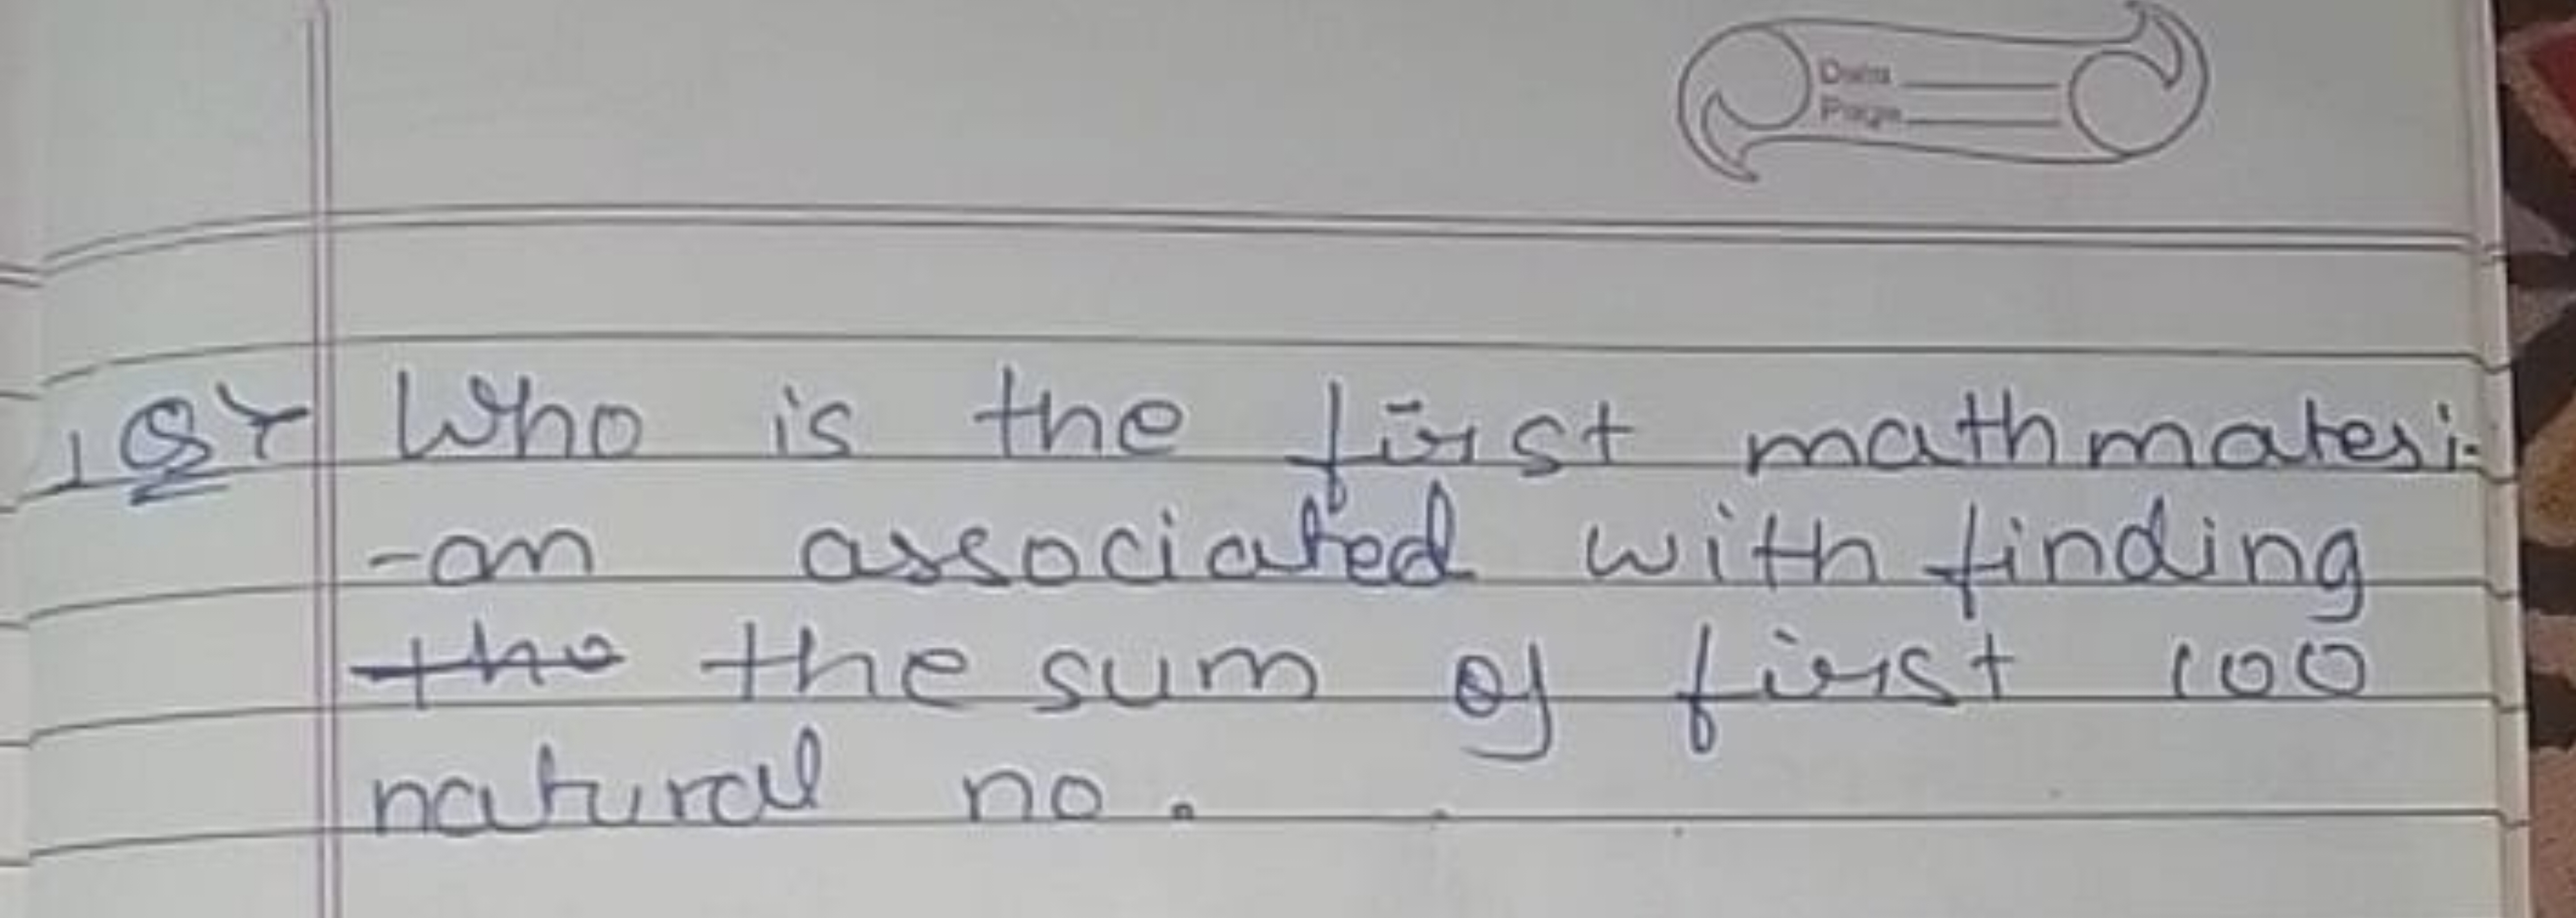 Date
Page
1 Q> Who is the first mathmatesi-
-an associated with finding
the sum of first 100
natural no.